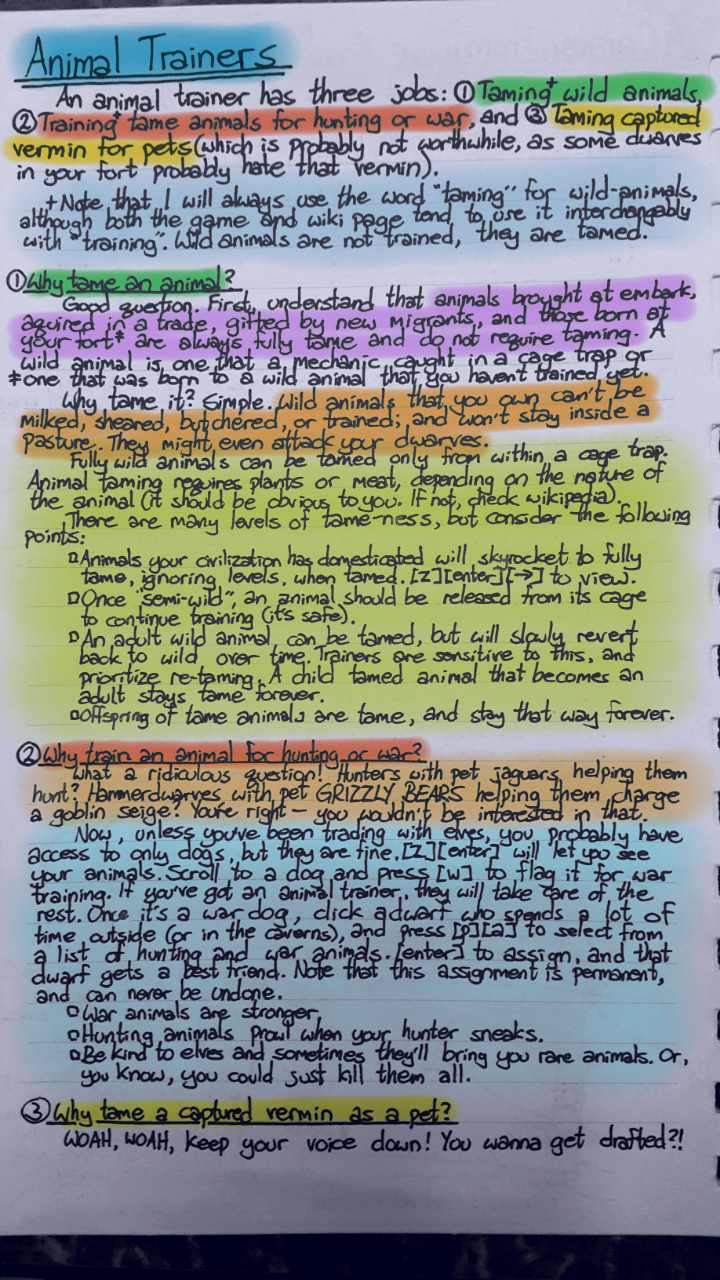 Animal Trainers
An animal trainer has three jobs: ① Taming⁺ wild animals,
② Training⁺ tame animals for hunting or war, and ③ Taming captured
vermin for pets (which is probably not worthwhile, as some dwarves
in your fort probably hate that vermin).
+Note that I will always use the word "taming" for wild-animals,
although both the game and wiki page tend to use it interchangably
with "training". Wild animals are not trained, they are tamed.
① Why tame an animal?
Good question. First, understand that animals brought at embark,
aquired in a trade, gifted by new migrants, and those born at
your fort* are always fully tame and do not require taming. A
wild animal is one that a mechanic caught in a cage trap or
*one that was born to a wild animal that you haven't trained yet.
Why tame it? Simple. Wild animals that you own can't be
milked, sheared, butchered, or trained; and won't stay inside a
pasture. They might even attack your dwarves.
Fully wild animals can be tamed only from within a cage trap.
Animal taming requires plants or meat, depending on the nature of
the animal (it should be obvious to you. If not, check wikipedia).
There are many levels of tame-ness, but consider the following
points:
▫Animals your civilization has domesticated will skyrocket to fully
tame, ignoring levels, when tamed. [z][enter][→] to view.
▫Once "semi-wild", an animal should be released from its cage
to continue training (it's safe).
▫An adult wild animal can be tamed, but will slowly revert
back to wild over time. Trainers are sensitive to this, and
prioritize re-taming. A child tamed animal that becomes an
adult stays tame forever.
▫Offspring of tame animals are tame, and stay that way forever.
② Why train an animal for hunting or war?
What a ridiculous question! Hunters with pet jaguars, helping them
hunt? Hammerdwarves with pet GRIZZLY BEARS helping them charge
a goblin seige? You're right – you wouldn't be interested in that.
Now, unless you've been trading with elves, you probably have
access to only dogs, but they are fine. [z][enter] will let you see
your animals. Scroll to a dog and press [w] to flag it for war
training. If you've got an animal trainer, they will take care of the
rest. Once it's a war dog, click a dwarf who spends a lot of
time outside (or in the caverns), and press [p][a] to select from
a list of hunting and war animals. [enter] to assign, and that
dwarf gets a best friend. Note that this assignment is permanent,
and can never be undone.
▫War animals are stronger,
▫Hunting animals prowl when your hunter sneaks.
▫Be kind to elves and sometimes they'll bring you rare animals. Or,
you know, you could just kill them all.
③ Why tame a captured vermin as a pet?
WOAH, WOAH, keep your voice down! You wanna get drafted?!